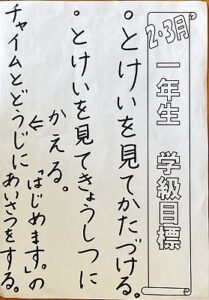 2・3月
一年生 学級目標
○とけいを見てかたづける。
○とけいを見てきょうしつに
かえる。
⇐「はじめます。」の
チャイムとどうじにあいさつをする。